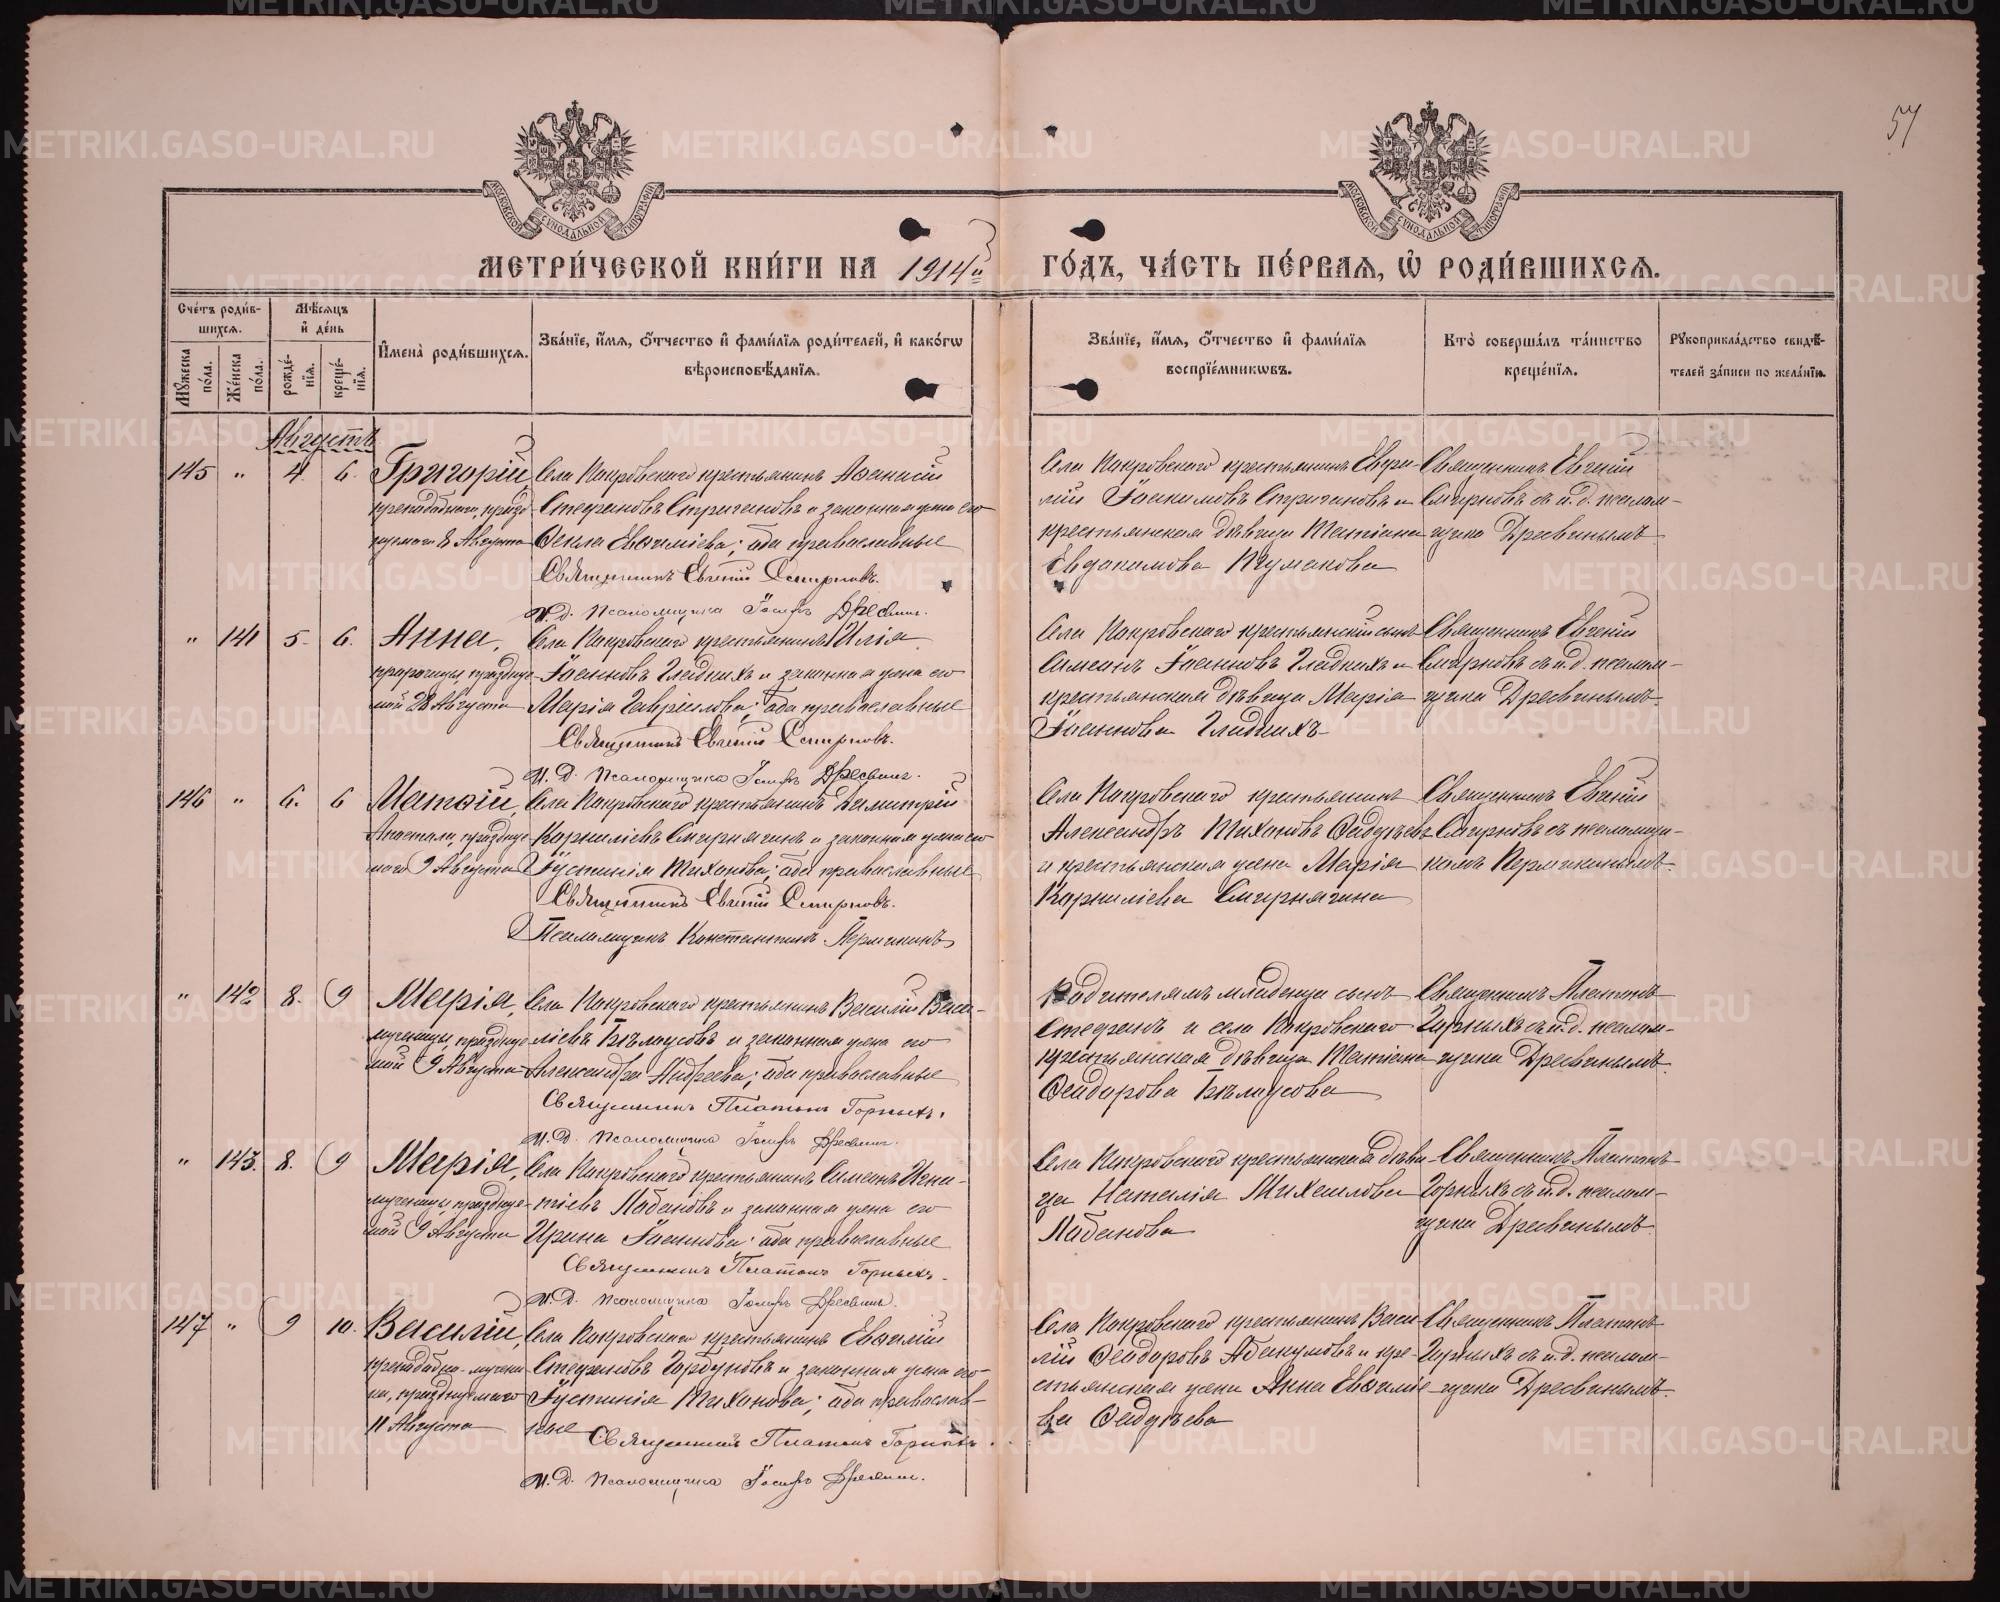 57
МЕТРИ́ЧЕСКОЙ КНИ́ГИ НА 1914й ГО́ДЪ, ЧА́СТЬ ПЕ́РВАЯ, Ѡ РОДИ́ВШИХСЯ.
Сче́тъ роди́вшихся.
Мѹжеска по́ла.
Же́нска по́ла.
Мѣсяцъ и де́нь
рожде́нїя.
креще́нїя.
Имена̀ роди́вшихся.
Зва́нїе, и́мя, ѻ́тчество и фами́лїя роди́телей, и како́гѡ
вѣроисповѣ́данїя.
Зва́нїе, и́мя, ѻ́тчество и фами́лїя
воспрїе́мникѡвъ.
Кто̀ соверша́лъ та́инство
креще́нїя.
Рꙋкоприкла́дство свидѣ́-
телей за́писи по жела́нїю.
Августъ
145 " 4. 6. Григорій,
преподобнаго, празд-
нуемаго 8 Августа
Села Покровскаго крестьянинъ Аѳанасій
Стефановъ Стригановъ и законная жена его
Ѳекла Евѳиміева; оба православные
Священникъ Евгеній Смирновъ.
И. Д. Псаломщика Іосифъ Дресвинъ.
Села Покровскаго крестьянинъ
Іоакимовъ Стригановъ и
крестьянская дѣвица Татіана
Евдокимова
Священникъ Евгеній
Смирновъ съ и. д. псалом-
щика Дресвинымъ
" 141 5. 6. Анна,
пророчицы, празднуе-
мой 28 Августа
Села Покровскаго крестьянинъ Илія
Іоанновъ Гладкихъ и законная жена его
Марія Гавріилова; оба православные
Священникъ Евгеній Смирновъ.
И. Д. Псаломщика Іосифъ Дресвинъ.
Села Покровскаго крестьянскій сынъ
Симеонъ Іоанновъ Гладкихъ и
крестьянская дѣвица Марія
Іоаннова Гладкихъ
Священникъ Евгеній
Смирновъ съ и. д. псалом-
щика Дресвинымъ.
146 " 6. 6 Матѳій,
Апостола, празднуе-
маго 9 Августа
Села Покровскаго крестьянинъ Димитрій
Корниліевъ Смирнягинъ и законная жена его
Іустинія Тихонова; оба православные
Священникъ Евгеній Смирновъ.
Псаломщикъ Константинъ Пермикинъ
Села Покровскаго крестьянинъ
Александръ Тихоновъ
и крестьянская жена Марія
Корниліева Смирнягина
Священникъ Евгеній
Смирновъ съ псаломщи-
комъ Пермикинымъ.
" 142 8. 9 Марія,
мученицы, празднуе-
мой 9 Августа
Села Покровскаго крестьянинъ Василій Васи-
ліевъ Бѣлоусовъ и законная жена его
Александра Андреева; оба православные
Священникъ Платонъ Горныхъ.
И. Д. Псаломщика Іосифъ Дресвинъ.
Родителямъ младенца сынъ
Стефанъ и села Покровскаго
крестьянская дѣвица Татіана
Ѳеодорова Бѣлоусова
Священникъ Платонъ
Горныхъ съ и. д. псалом-
щика Дресвинымъ.
" 143. 8. 9 Марія,
мученицы, празднуе-
мой 9 Августа
Села Покровскаго крестьянинъ Симеонъ Игна-
тіевъ Лобановъ и законная жена его
Ирина Іоаннова; оба православные
Священникъ Платонъ Горныхъ.
И. Д. Псаломщика Іосифъ Дресвинъ.
Села Покровскаго крестьянская дѣви-
ца Наталія Михаилова
Лобанова
Священникъ Платонъ
Горныхъ съ и. д. псалом-
щика Дресвинымъ
147 " 9 10. Василій,
преподобно-мучени-
ка, празднуемаго
11 Августа
Села Покровскаго крестьянинъ Евѳимій
Стефановъ Горбуновъ и законная жена его
Іустинія Тихонова; оба православ-
ные
Священникъ Платонъ Горныхъ.
И. Д. Псаломщика Іосифъ Дресвинъ.
Села Покровскаго крестьянинъ Васи-
лій Ѳеодоровъ Абакумовъ и кре-
стьянская жена Анна Евѳиміе-
ва
Священникъ Платонъ
Горныхъ съ и. д. псалом-
щика Дресвинымъ.
METRIKI.GASO-URAL.RU